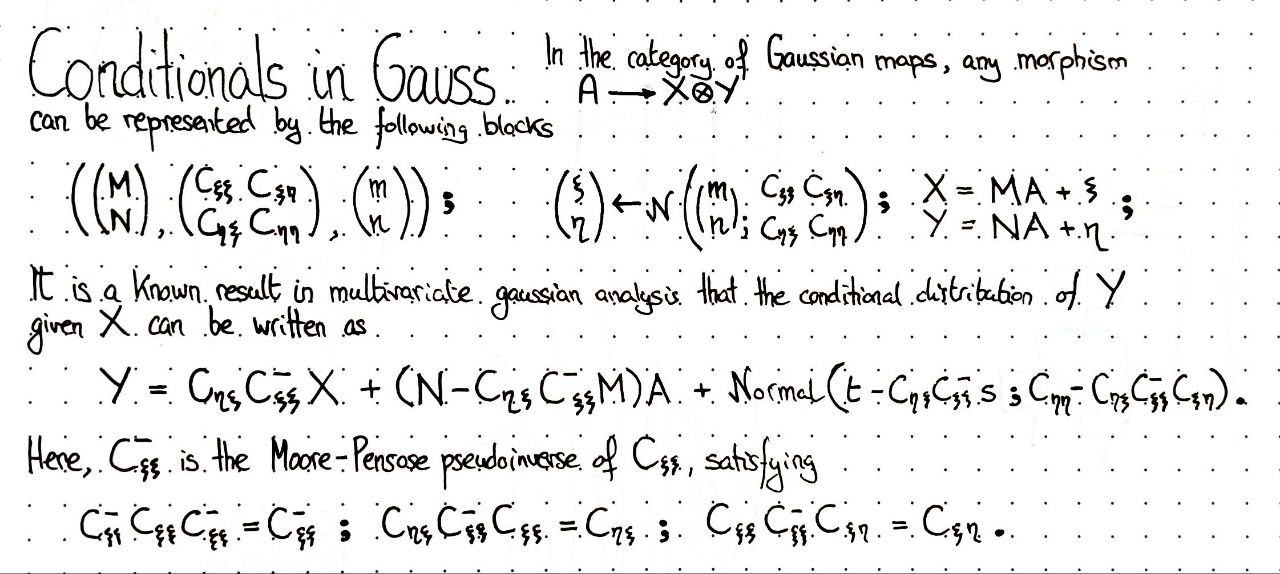 Conditionals in Gauss. In the category of Gaussian maps, any morphism
A ⟶ X⊗Y
can be represented by the following blocks
((M N), (C_ξξ C_ξη C_ηξ C_ηη), (m n)) ; (ξ η) ← N((m n); C_ξξ C_ξη C_ηξ C_ηη) ; X = MA + ξ ; Y = NA + η
It is a known result in multivariate gaussian analysis that the conditional distribution of Y
given X can be written as
Y = C_ηξ C⁻_ξξ X + (N - C_ηξ C⁻_ξξ M)A + Normal(t - C_ηξ C⁻_ξξ s ; C_ηη - C_ηξ C⁻_ξξ C_ξη).
Here, C⁻_ξξ is the Moore-Pensose pseudoinverse of C_ξξ, satisfying
C⁻_ξξ C_ξξ C⁻_ξξ = C⁻_ξξ ; C_ηξ C⁻_ξξ C_ξξ = C_ηξ ; C_ξξ C⁻_ξξ C_ξη = C_ξη.